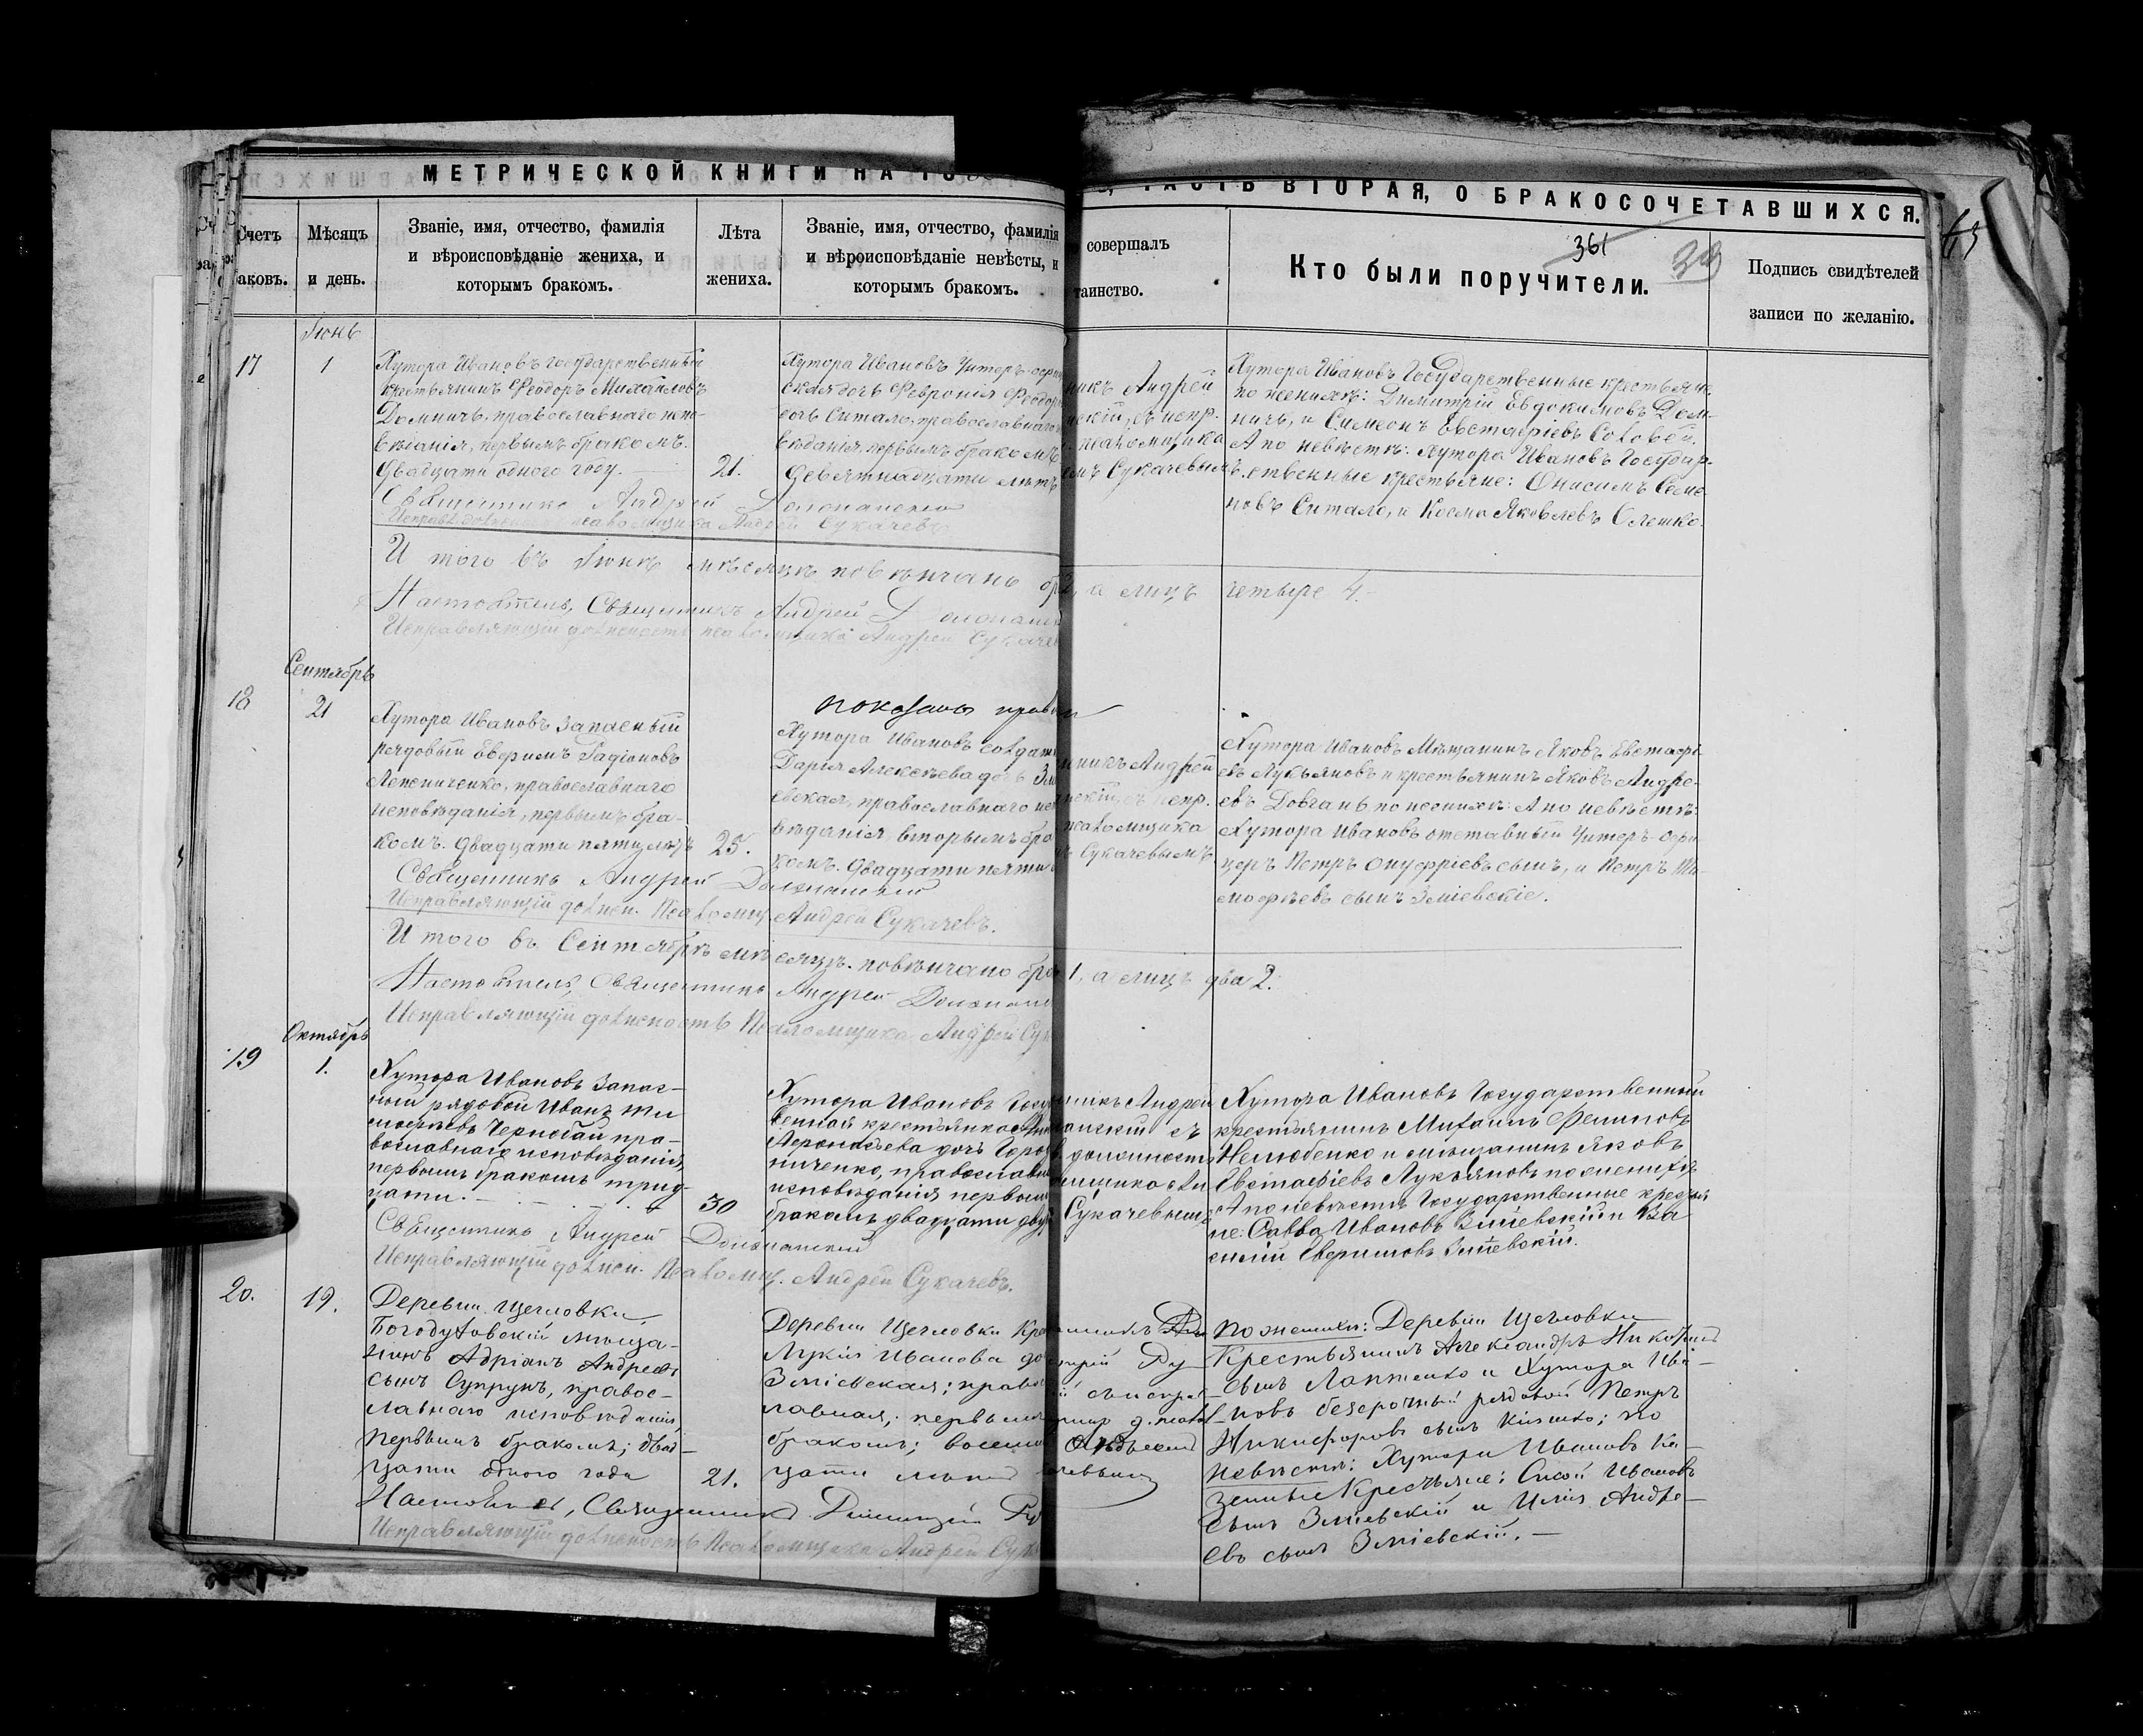 МЕТРИЧЕСКОЙ КНИГИ НА
ЧАСТЬ ВТОРАЯ, О БРАКОСОЧЕТАВШИХСЯ.
361
Счетъ
аковъ.
Мѣсяцъ
и день.
Званіе, имя, отчество, фамилія
и вѣроисповѣданіе жениха, и
которымъ бракомъ.
Лѣта
жениха.
Званіе, имя, отчество, фамилія
и вѣроисповѣданіе невѣсты, и
которымъ бракомъ.
совершалъ
таинство.
Кто были поручители.
Подпись свидѣтелей
записи по желанію.
Іюнь
17
1
Хутора Ивановъ Государственный
крестьянинъ Феодоръ Михайловъ
Домничъ, православнаго испо-
вѣданія, первымъ бракомъ.
Двадцати одного году.
21.
Хутора Ивановъ Унтеръ-офи
ская дочь Февронія Феодор
дочь Ситало, православнаго
вѣданія, первымъ бракомъ
Девятнадцати лѣтъ
никъ Андрей
нскій, съ испр.
псаломщика
емъ Сукачевымъ
Хутора Ивановъ Государственные крестьяне
по женихѣ: Димитрій Евдокимовъ Дом-
ничъ, и Симеонъ Евстафіевъ Соловей.
А по невѣстѣ: Хутора Ивановъ Государ-
ственные крестьяне: Онисимъ Семе
новъ Ситало, и Косма Яковлевъ Олешко.
Священникъ Андрей
псаломщика Андрей Сукачевъ
И того въ Іюнѣ мѣсяцѣ повѣнчано бр
2, а лицъ четыре 4.
Настоятель, Священникъ Андрей
Исправляющій должность псаломщика Андрей Сукаче
Сентябрь
18
21
Хутора Ивановъ Запасный
рядовый Евфимъ Радіоновъ
Лепениченко, православнаго
исповѣданія, первымъ бра-
комъ. Двадцати пяти лѣтъ
25.
Хутора Ивановъ солдат
Дарья Алексѣева дочь Змі
евская, православнаго испо
вѣданія, вторымъ бра
комъ. Двадцати пяти
никъ Андрей
нскій, съ испр.
псаломщика
Сукачевымъ
Хутора Ивановъ Мѣщанинъ Яковъ Евстафі-
евъ Лукьяновъ и крестьянинъ Яковъ Андре-
евъ Довгань по женихѣ: А по невѣстѣ:
Хутора Ивановъ отставный Унтеръ-офи
церъ Петръ Онуфріевъ сынъ, и Петръ Ти-
мофѣевъ сынъ Зміевскіе.
Священникъ Андрей
Исправляющій должн. Псаломщ. Андрей Сукачевъ.
И того въ Сентябрѣ мѣсяцѣ повѣнчано бра
1, а лицъ два 2.
Настоятель, Священникъ Андрей
Исправляющій должность Псаломщика Андрей Сук
Октябрь
19
1.
Хутора Ивановъ Запас-
ной рядовой Иванъ Ти
мофѣевъ Чернобай пра-
вославнаго исповѣданія,
первымъ бракомъ трид-
цати.
30
Хутора Ивановъ Госу
венная крестьянка
Афонасьева дочь
ниченко, православн
исповѣданія первым
бракомъ двадцати дву
никъ Андрей
анскій съ
должность
Сукачевымъ
Хутора Ивановъ Государственный
крестьянинъ Михаилъ Филиповъ
Нелюбенко и мѣщанинъ Яковъ
Евстафіевъ Лукьяновъ по женихѣ
А по невѣстѣ Государственные крестья
не: Савва Ивановъ Зміевскій и Ва
силій Евфимовъ Зміевскій.
Священникъ Андрей
Исправляющій должн. Псаломщ. Андрей Сукачевъ.
20.
19.
Деревни Щегловки,
Богодуховскій мѣща-
нинъ Адріанъ Андреевъ
сынъ Супрунъ, правос-
лавнаго исповѣданія,
первымъ бракомъ; двад-
цати одного года
21.
Деревни Щегловки Кре
Лукія Иванова до
Зміевская; право
лавная, первымъ
бракомъ; восемн
цати лѣтъ
По женихѣ: Деревни Щегловки
Крестьянинъ Александръ Николаевъ
сынъ Лаптенко и Хутора Ива-
новъ безсрочный рядовой Петръ
Никифоровъ сынъ Кіяшко; по
невѣстѣ: Хутора Ивановъ Ка-
зенные Крестьяне: Сисой Ивановъ
сынъ Зміевскій и Илія Андре-
евъ сынъ Зміевскій.
Настоятель, Священникъ Димитрій
Исправляющій должность Псаломщика Андрей Сук